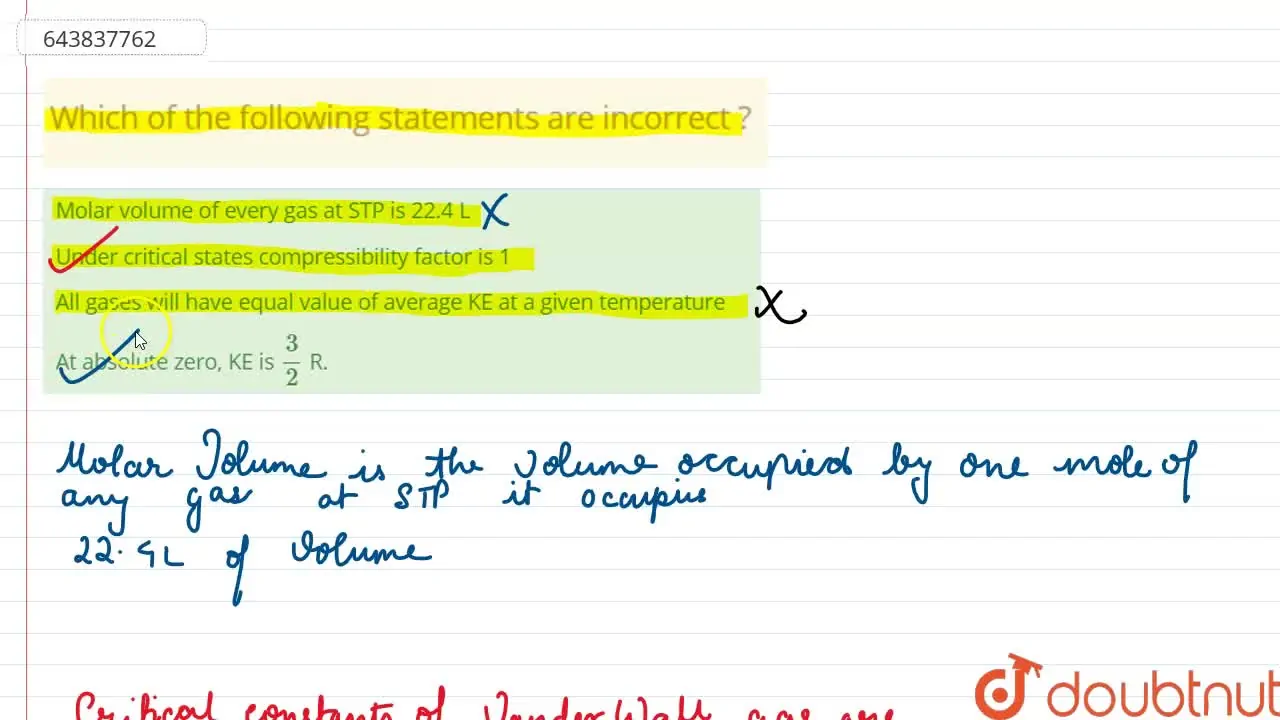 643837762
Which of the following statements are incorrect ?
Molar volume of every gas at STP is 22.4 L X
Under critical states compressibility factor is 1
All gases will have equal value of average KE at a given temperature X
At absolute zero, KE is 3/2 R.
Molar Volume is the volume occupied by one mole of
any gas at STP it occupies
22.4L of volume
Critical constants of Vander Wall gas are
doubtnut